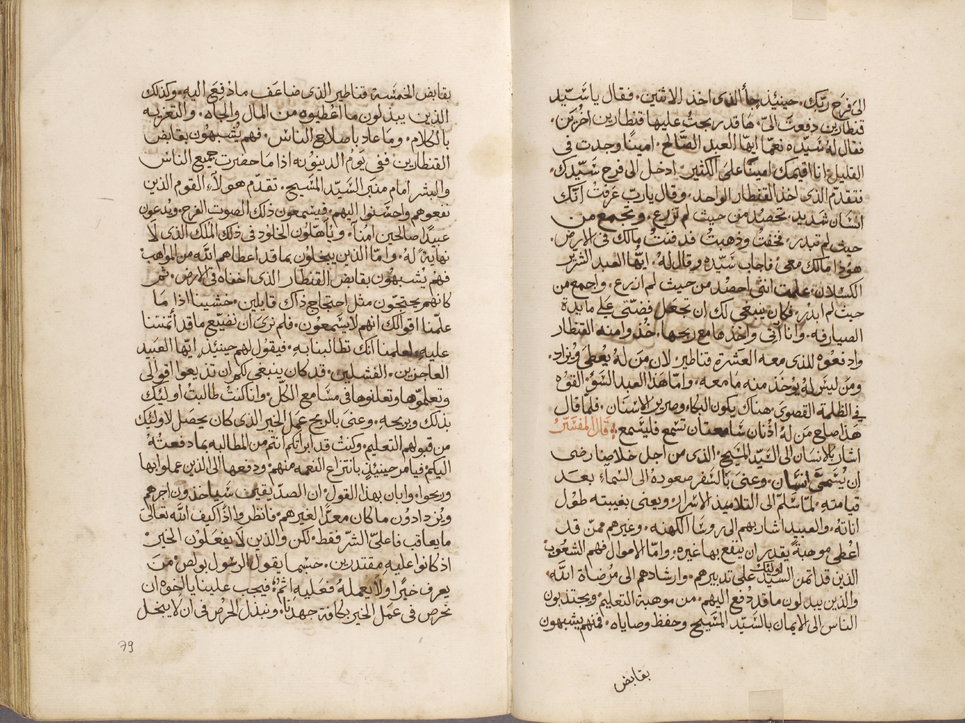 الى فرح ربك، حينئذ جا الذى اخذ الاثنين، فقال يا سيد
قنطارين دفعت الىّ، ها قد ربحت عليها قنطارين اخرين،
فقال له سيده نعما ايها العبد الصالح، امينا وجدت فى
القليل، انا اقيمك امينا على الكثير، ادخل الى فرح سيدك،
فتقدم الذى اخذ القنطار الواحد، وقال يارب عرفت انك
انسان شديد، تحصد من حيث لم تزرع، وتجمع من
حيث لم تبدر، فخفت وذهبت فدفنت مالك فى الارض،
هوذا مالك معى، فاجاب سيده وقال له، ايها العبد الشرير
الكسلان، علمت اننى احصد من حيث لم ازرع، واجمع من
حيث لم ابدر، فكان ينبغى لك ان تجعل فضتى على مايدة
الصيارفه، وانا اتى واخذ ما مع ربحها، خذوا منه القنطار
وادفعوه للذى معه العشرة قناطير، لان من له يعطى ويزاد،
ومن ليس له يوخذ منه ما معه، واما هذا العبد السو القوه
فى الظلمه القصوى هناك يكون البكا، وصرير الاسنان، فلما قال
هذا صاح من له اذنان سامعتان تسمع فليسمع، قال المفسر
اشار بالانسان الى السيد المسيح، الذى من اجل خلاصنا رضى
ان يسمى انسان، وعنى بالسفر صعوده الى السماء بعد
قيامته، لما سلم الى التلاميذ الاسرار، ويعنى بغيبته طول
اناته، والعبيد اشار بهم الى روسا الكهنه، وغيرهم ممن قد
اعطى موهبة يقدر ان ينفع بها غيره، واما الاموال فهم الشعوب
الذين قد اتمن السيد اوليك على تدبيرهم، وارشادهم الى مرضاة الله،
والذين يبدلون ما قد دفع اليهم، من موهبة التعليم، ويجتذبون
الناس الى الايمان بالسيد المسيح وحفظ وصاياه، فهم يشبهون
بقابض
بقابض الخمسة قناطير الذى ضاعف ما دفع اليه، وكذلك
الذين يبدلون ما اعطيوه من المال والجاه، والتعزيه
بالكلام، وما عاد باصلاح الناس، فهم يشبهون بقابض
القنطارين، ففى يوم الدينونه اذا ما حضرت جميع الناس
والبشر امام منبر السيد المسيح، تقدم هولاء القوم الذين
نفعوهم واحسنوا اليهم، فيسمعون ذلك الصوت الفرح، ويدعون
عبيدا صالحين امنا، ويأهلون الخلود فى ذلك الملك الذى لا
نهاية له، واما الذين يبخلون بما قد اعطاهم الله من المواهب
فهم يشبهون بقابض القنطار الذى اخفاه فى الارض، ثم
كانهم يحتجون مثل احتجاج ذاك قايلين، خشينا اذا ما
علمنا اقوالك انهم لا يسمعون، فلم نرى ان نضيع ما قد امنتنا
عليه، لعلمنا انك تطالبنا به، فيقول لهم حينئذ ايها العبيد
العاجزين، الفشلين، قد كان ينبغى لكم ان تذيعوا اقوالى
وتعلموها وتعلنوها فى مسامع الكل، وانا كنت طالبت اوليك
بذلك وبربحه، وعنى بالربح عمل الخير الذى كان يحصل لاوليك
من قبولهم التعليم، وكنت قد ابرأتكم انتم من المطالبه بما دفعته
اليكم، فيامر حينئذ بانتزاع النعمه منهم، ودفعها الى الذين عملوا بها
وربحوا، وابان بهذا القول، ان الصديقين سياخذون اجرهم
ويزدادون ما كان معدا لغيرهم، فانظروا اذا كيف الله تعالى
ما يعاقب فاعلى الشر فقط، لكن والذين لا يفعلون الخير
اذ كانوا عليه مقتدرين، حسبما يقول الرسول بولص، من
يعرف خيرا ولا يعمله فعليه اثم، فيجب علينا يا اخوه ان
نحرص فى عمل الخير بكافة جهدنا، ونبذل الحرص فى ان لا نبخل
79